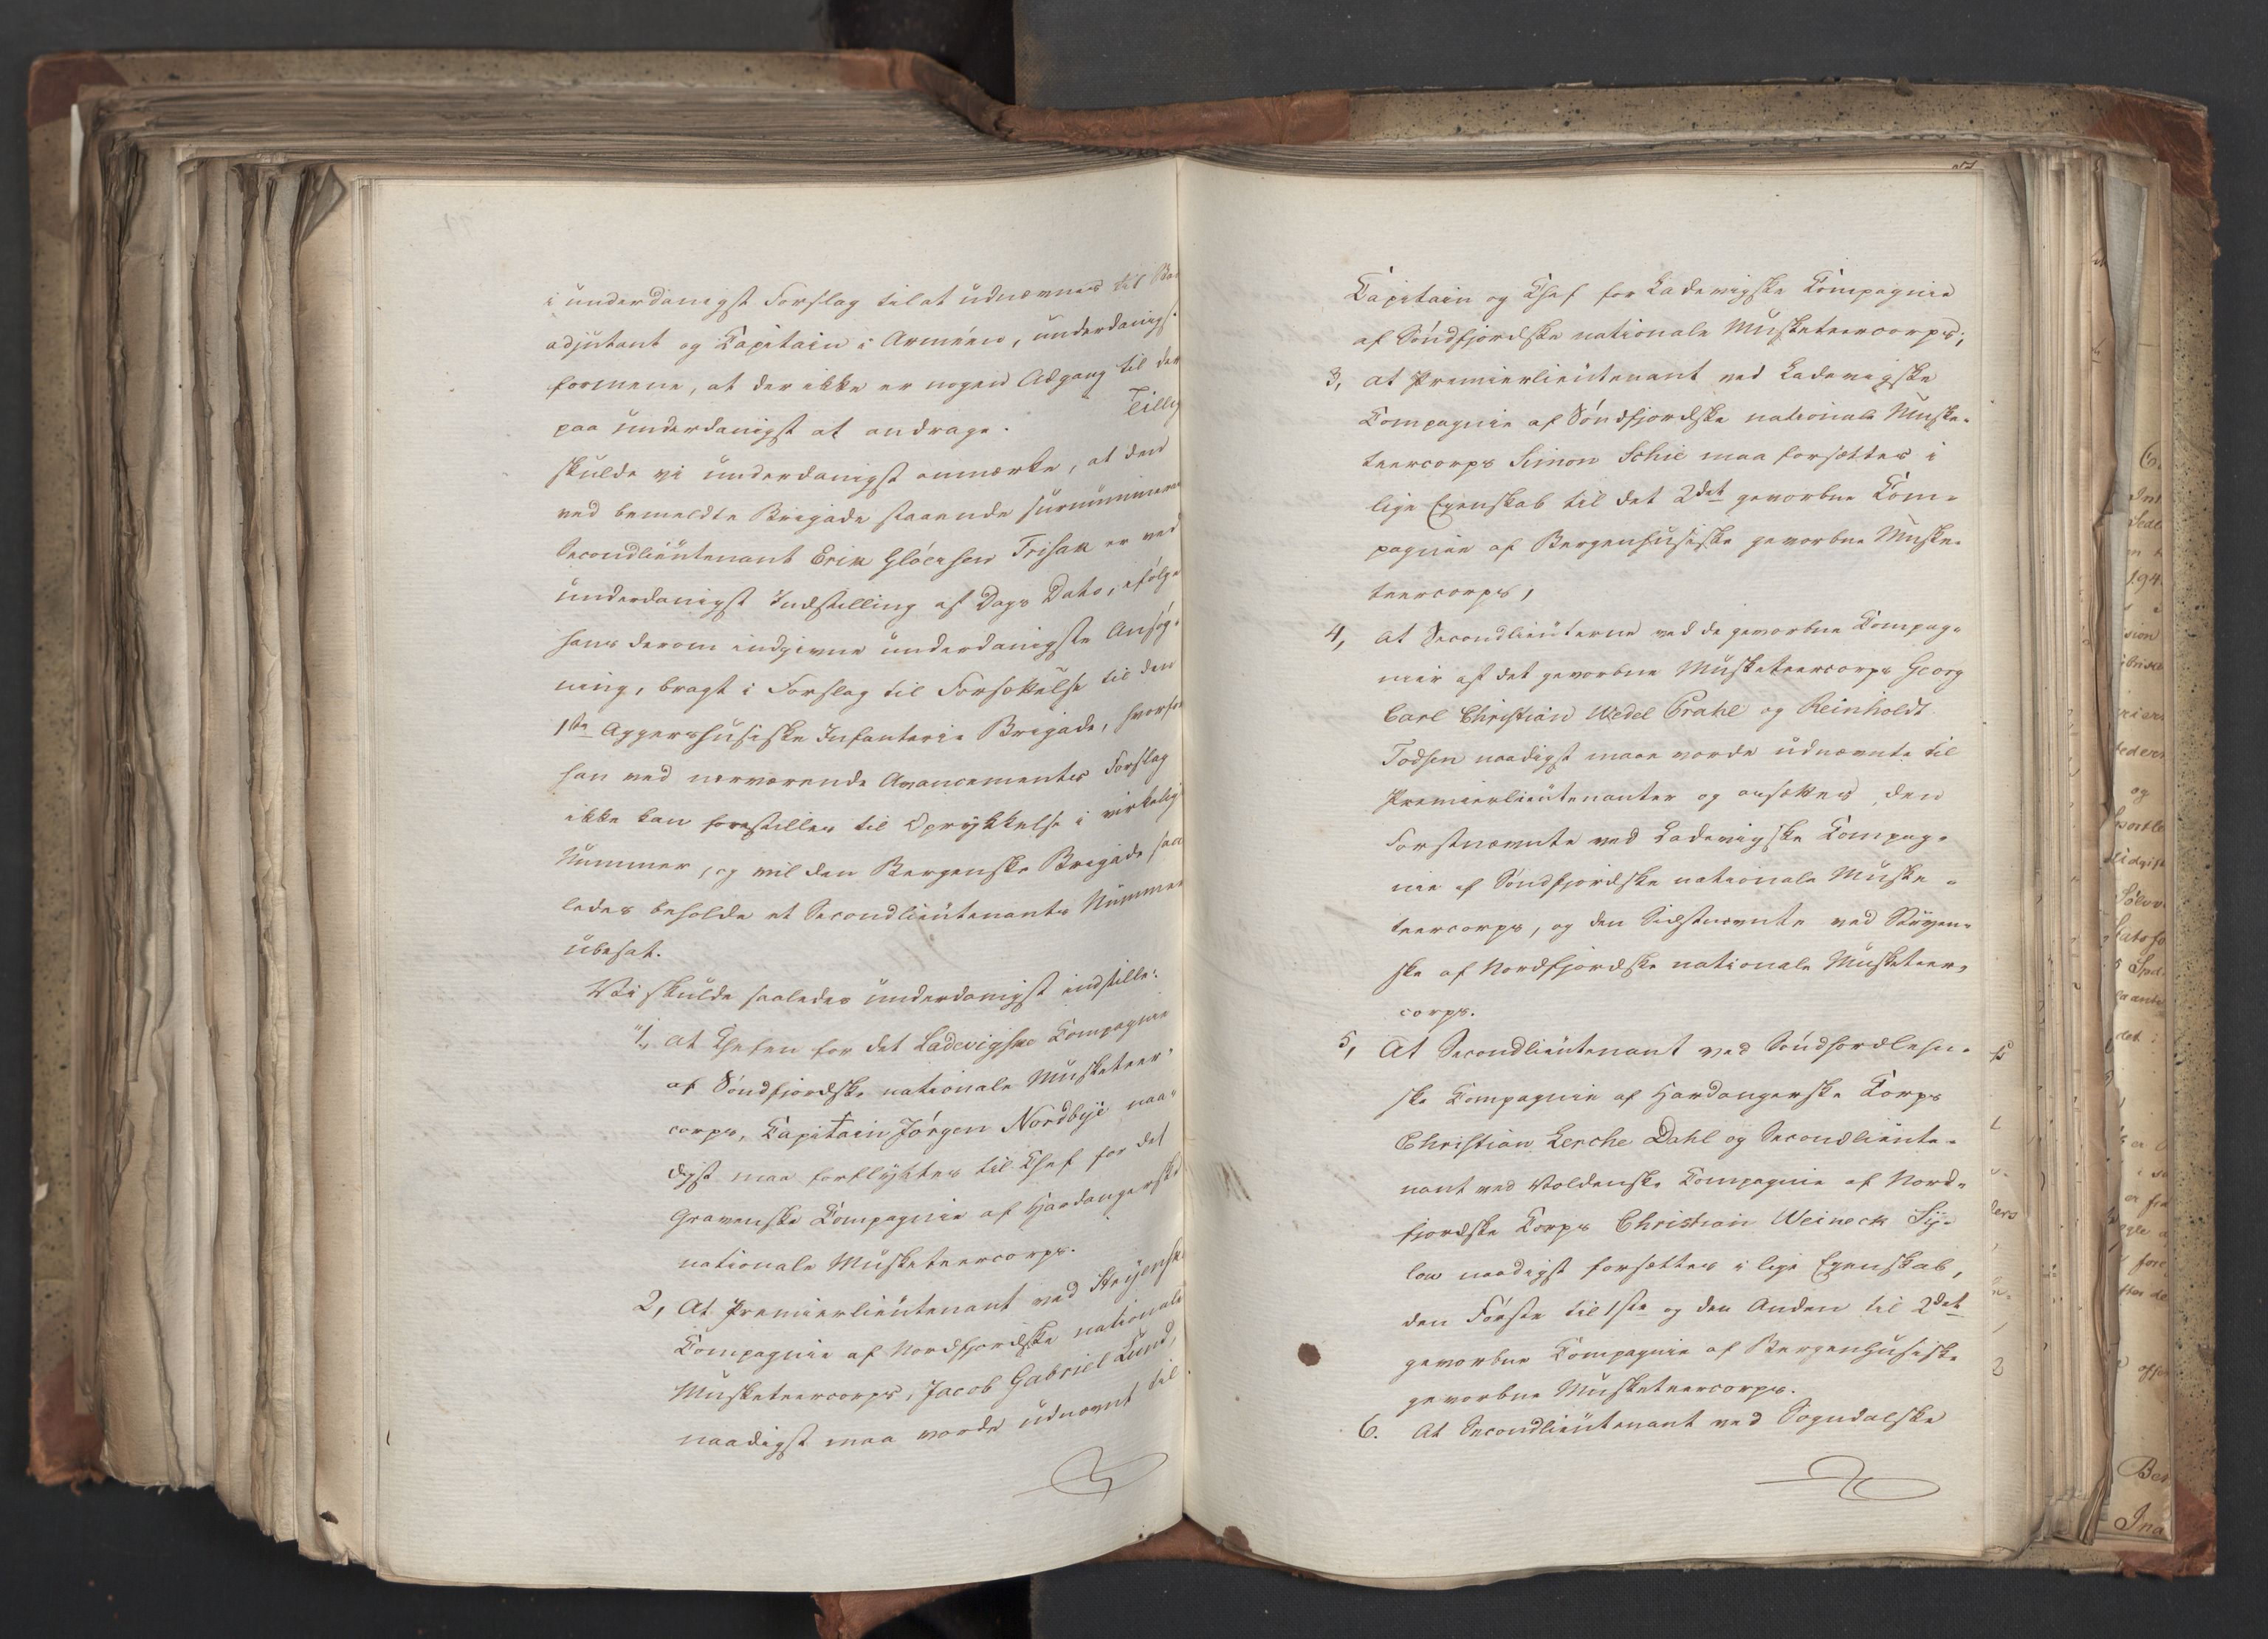 i underdanigst Forslag til at udnævnes til
adjutant og Capitain i Arméen, underdanigst
formene, at der ikke er nogen Adgang til der
paa underdanigst at andrage.
Tillig
skulde vi underdanigst anmærke, at den
ved bemeldte Brigade staaende surnummeraire
Secondlieutenant Erik Glöersen Frisak er ved
underdanigst Indstilling af Dags Dato, ifölge
hans derom indgivne underdanigste Ansög-
ning, bragt i Forslag til Forsættelse til den
1ste Aggershusiske Infanterie Brigade, hvorfor
han ved nærværende Avancements Forslag
ikke kan forestilles til Oprykkelse i virkelig
Nummer, og vil den Bergenske Brigade saa
ledes beholde et Secondlieutenants Nummer
ubesat.
Vi skulde saaledes underdanigst indstille:
"1, at Chefen for det Ladevigske Compagnie
af Söndfjordske nationale Musketeer-
corps, Capitain Jörgen Nordbye naa-
digst maa forflyttes til Chef for det
Gravenske Compagnie af Hardangerske
nationale Musketeercorps.
2, At Premierlieutenant ved Stryenske
Compagnie af Nordfjordske nationale
Musketeercorps, Jacob Gabriel Lund,
naadigst maa vorde udnævnt til
Capitain og Chef for Ladevigske Compagnie
af Söndfjordske nationale Musketeercorps;
3, at Premierlieutenant ved Ladevigske
Compagnie af Söndfjordske nationale Muske-
teercorps Simon Schie maa forsættes i
lige Egenskab til det 2det gevorbne Com-
pagnie af Bergenhusiske gevorbne Muske-
teercorps,
4, at Secondlieuterne ved de gevorbne Compag-
nier af det gevorbne Musketeercorps Georg
Carl Christian Wedel Prahl og Reinholdt
Todsen naadigst maae vorde udnævnte til
Premierlieutenanter og ansættes, den
Förstnævnte ved Ladevigske Compag-
nie af Söndfjordske nationale Muske-
teercorps, og den Sidstnævnte ved Stryen-
ske af Nordfjordske nationale Musketeer-
corps.
5, At Secondlieutenant ved Söndhordlehn-
ske Compagnie af Hardangerske Corps
Christian Lerche Dahl og Secondlieute-
nant ved Voldenske Compagnie af Nord-
fjordske Corps Christian Weineck Sy-
low naadigst forsættes i lige Egenskab,
den Förste til 1ste og den Anden til 2det
gevorbne Compagnie af Bergenhusiske
gevorbne Musketeercorps.
6. At Secondlieutenant ved Sogndalske